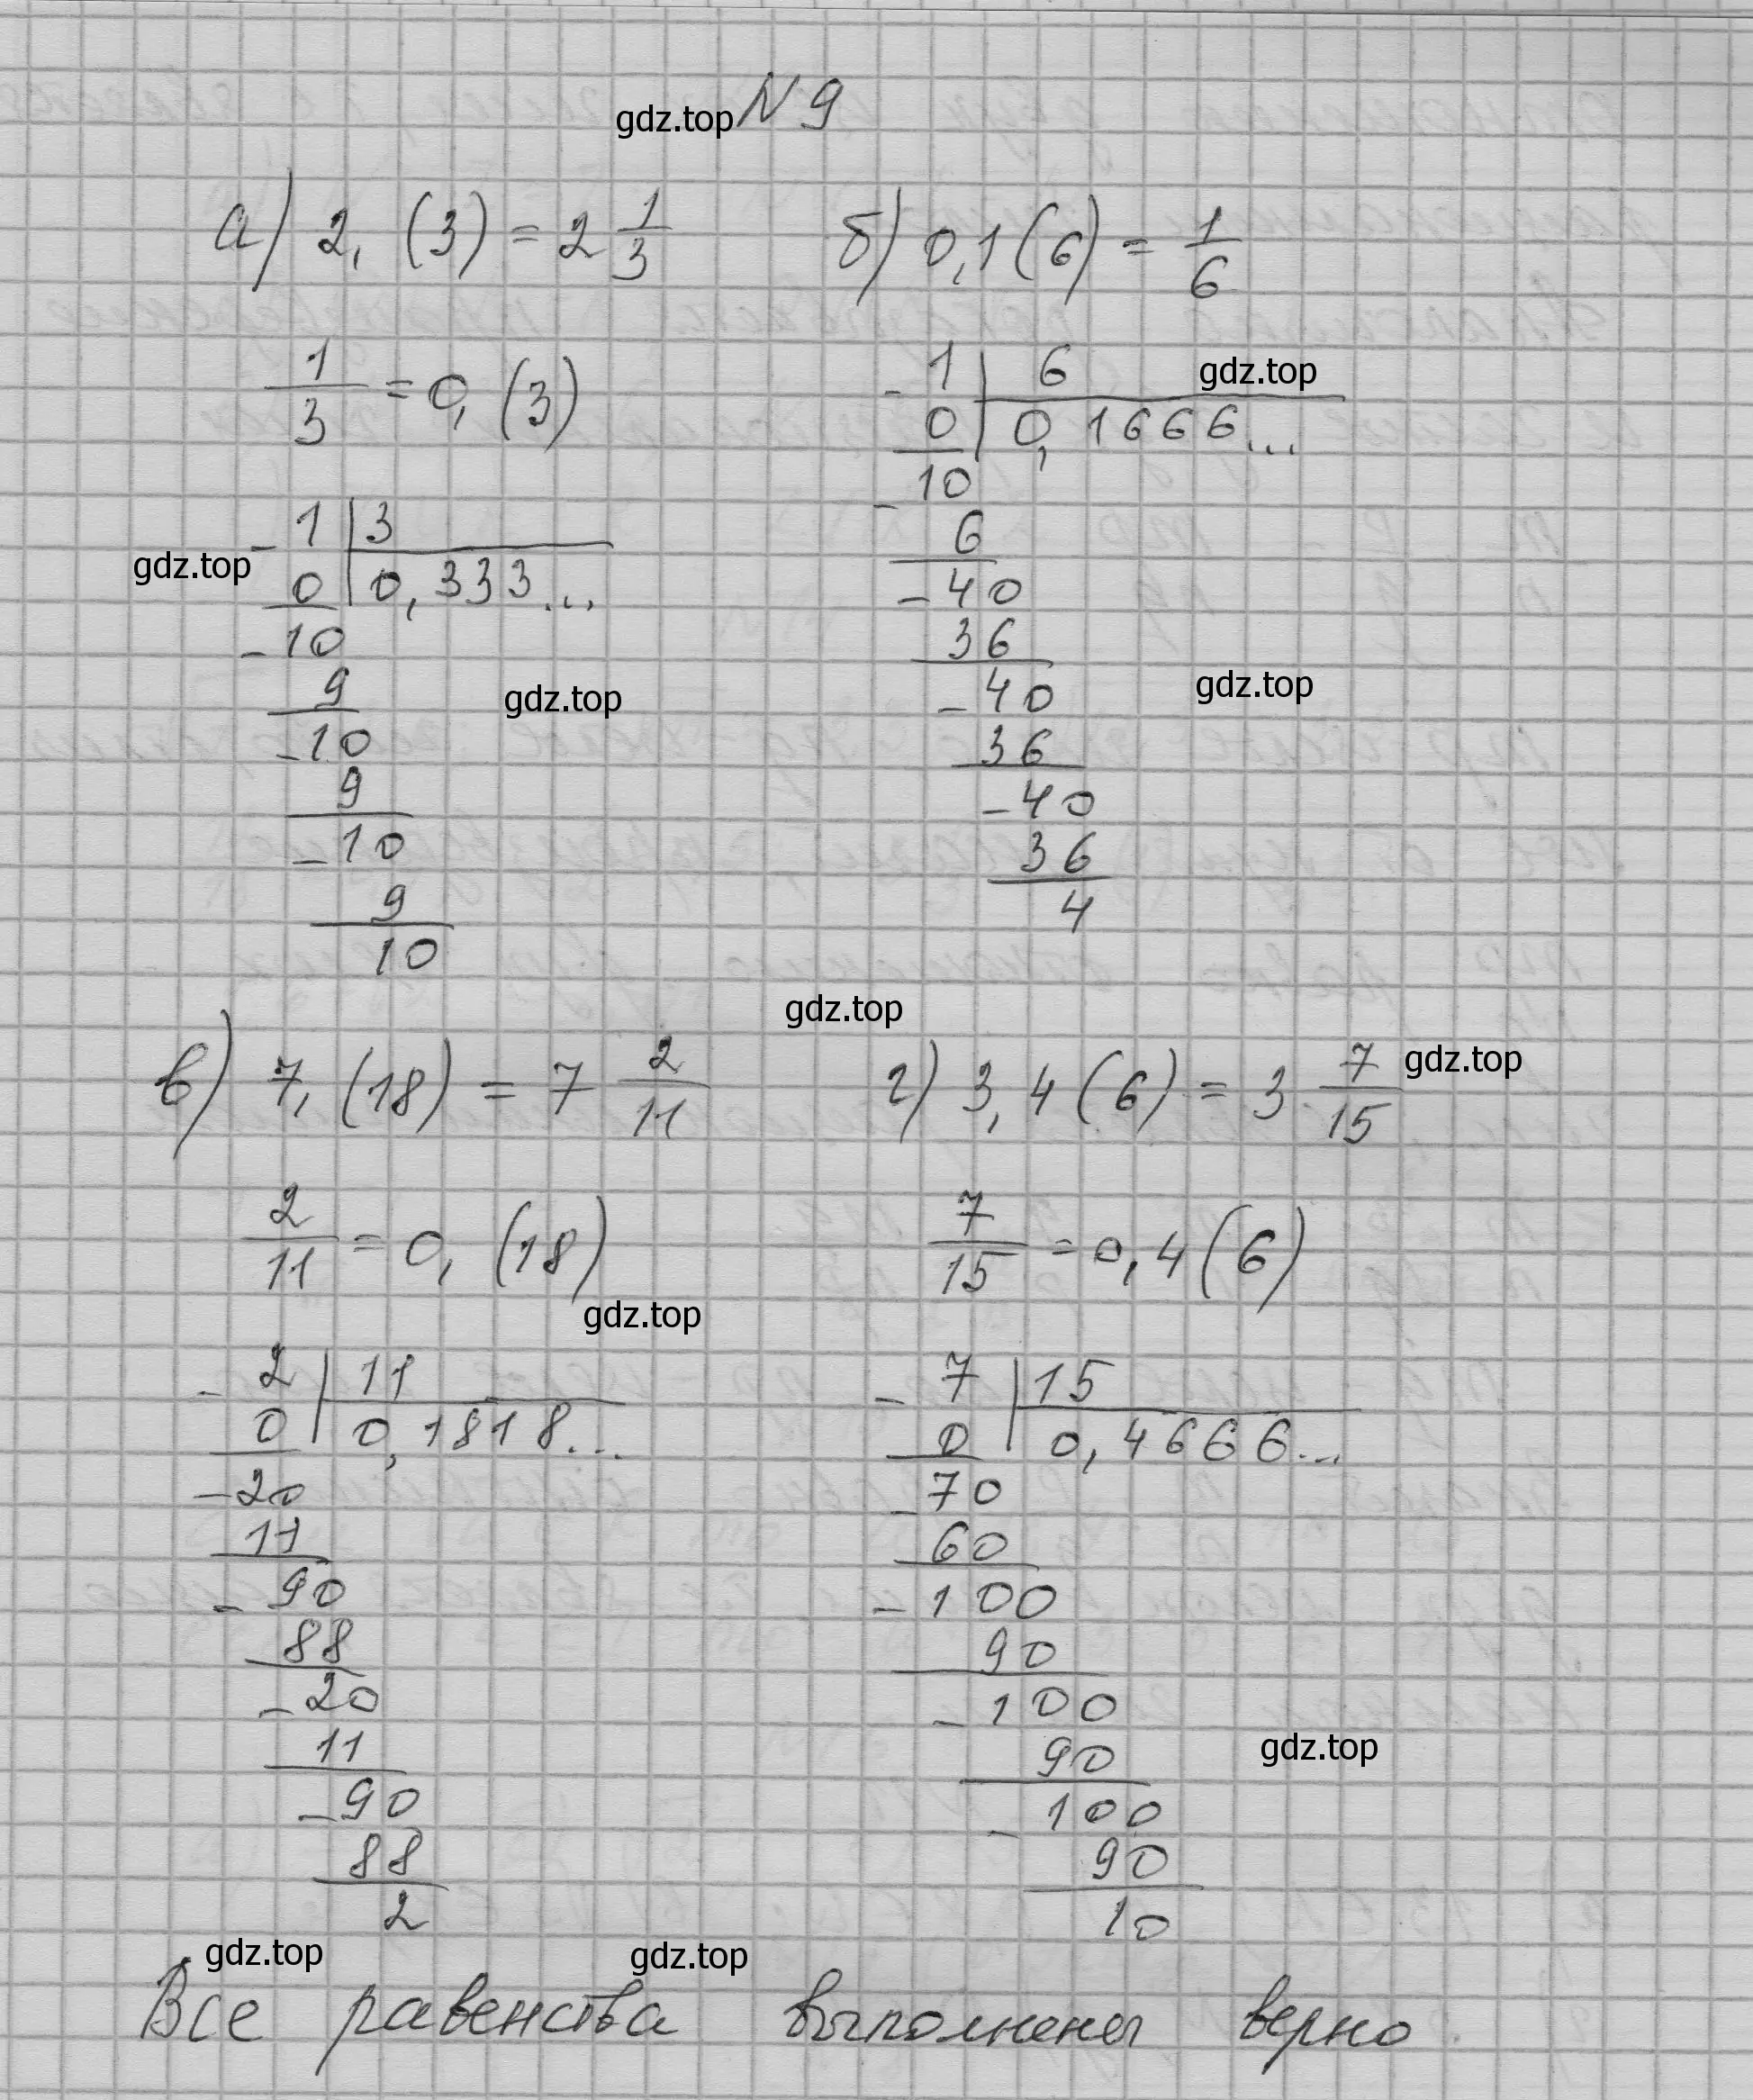 gdz.top № 9
а) 2,(3) = 2 1/3
б) 0,1(6) = 1/6
1/3 = 0,(3)
- 1 | 3
0 | 0,333...
- 10
9
- 10
9
- 10
9
10
gdz.top
gdz.top
- 1 | 6
0 | 0,1666...
- 10
6
- 40
36
- 40
36
- 40
36
4
gdz.top
gdz.top
gdz.top
в) 7,(18) = 7 2/11
г) 3,4(6) = 3 7/15
gdz.top
2/11 = 0,(18)
gdz.top
- 2 | 11
0 | 0,1818...
- 20
11
- 90
88
- 20
11
- 90
88
2
7/15 = 0,4(6)
- 7 | 15
0 | 0,4666...
- 70
60
- 100
90
- 100
90
- 100
90
10
gdz.top
gdz.top gdz.top
Все равенства выполнены верно.